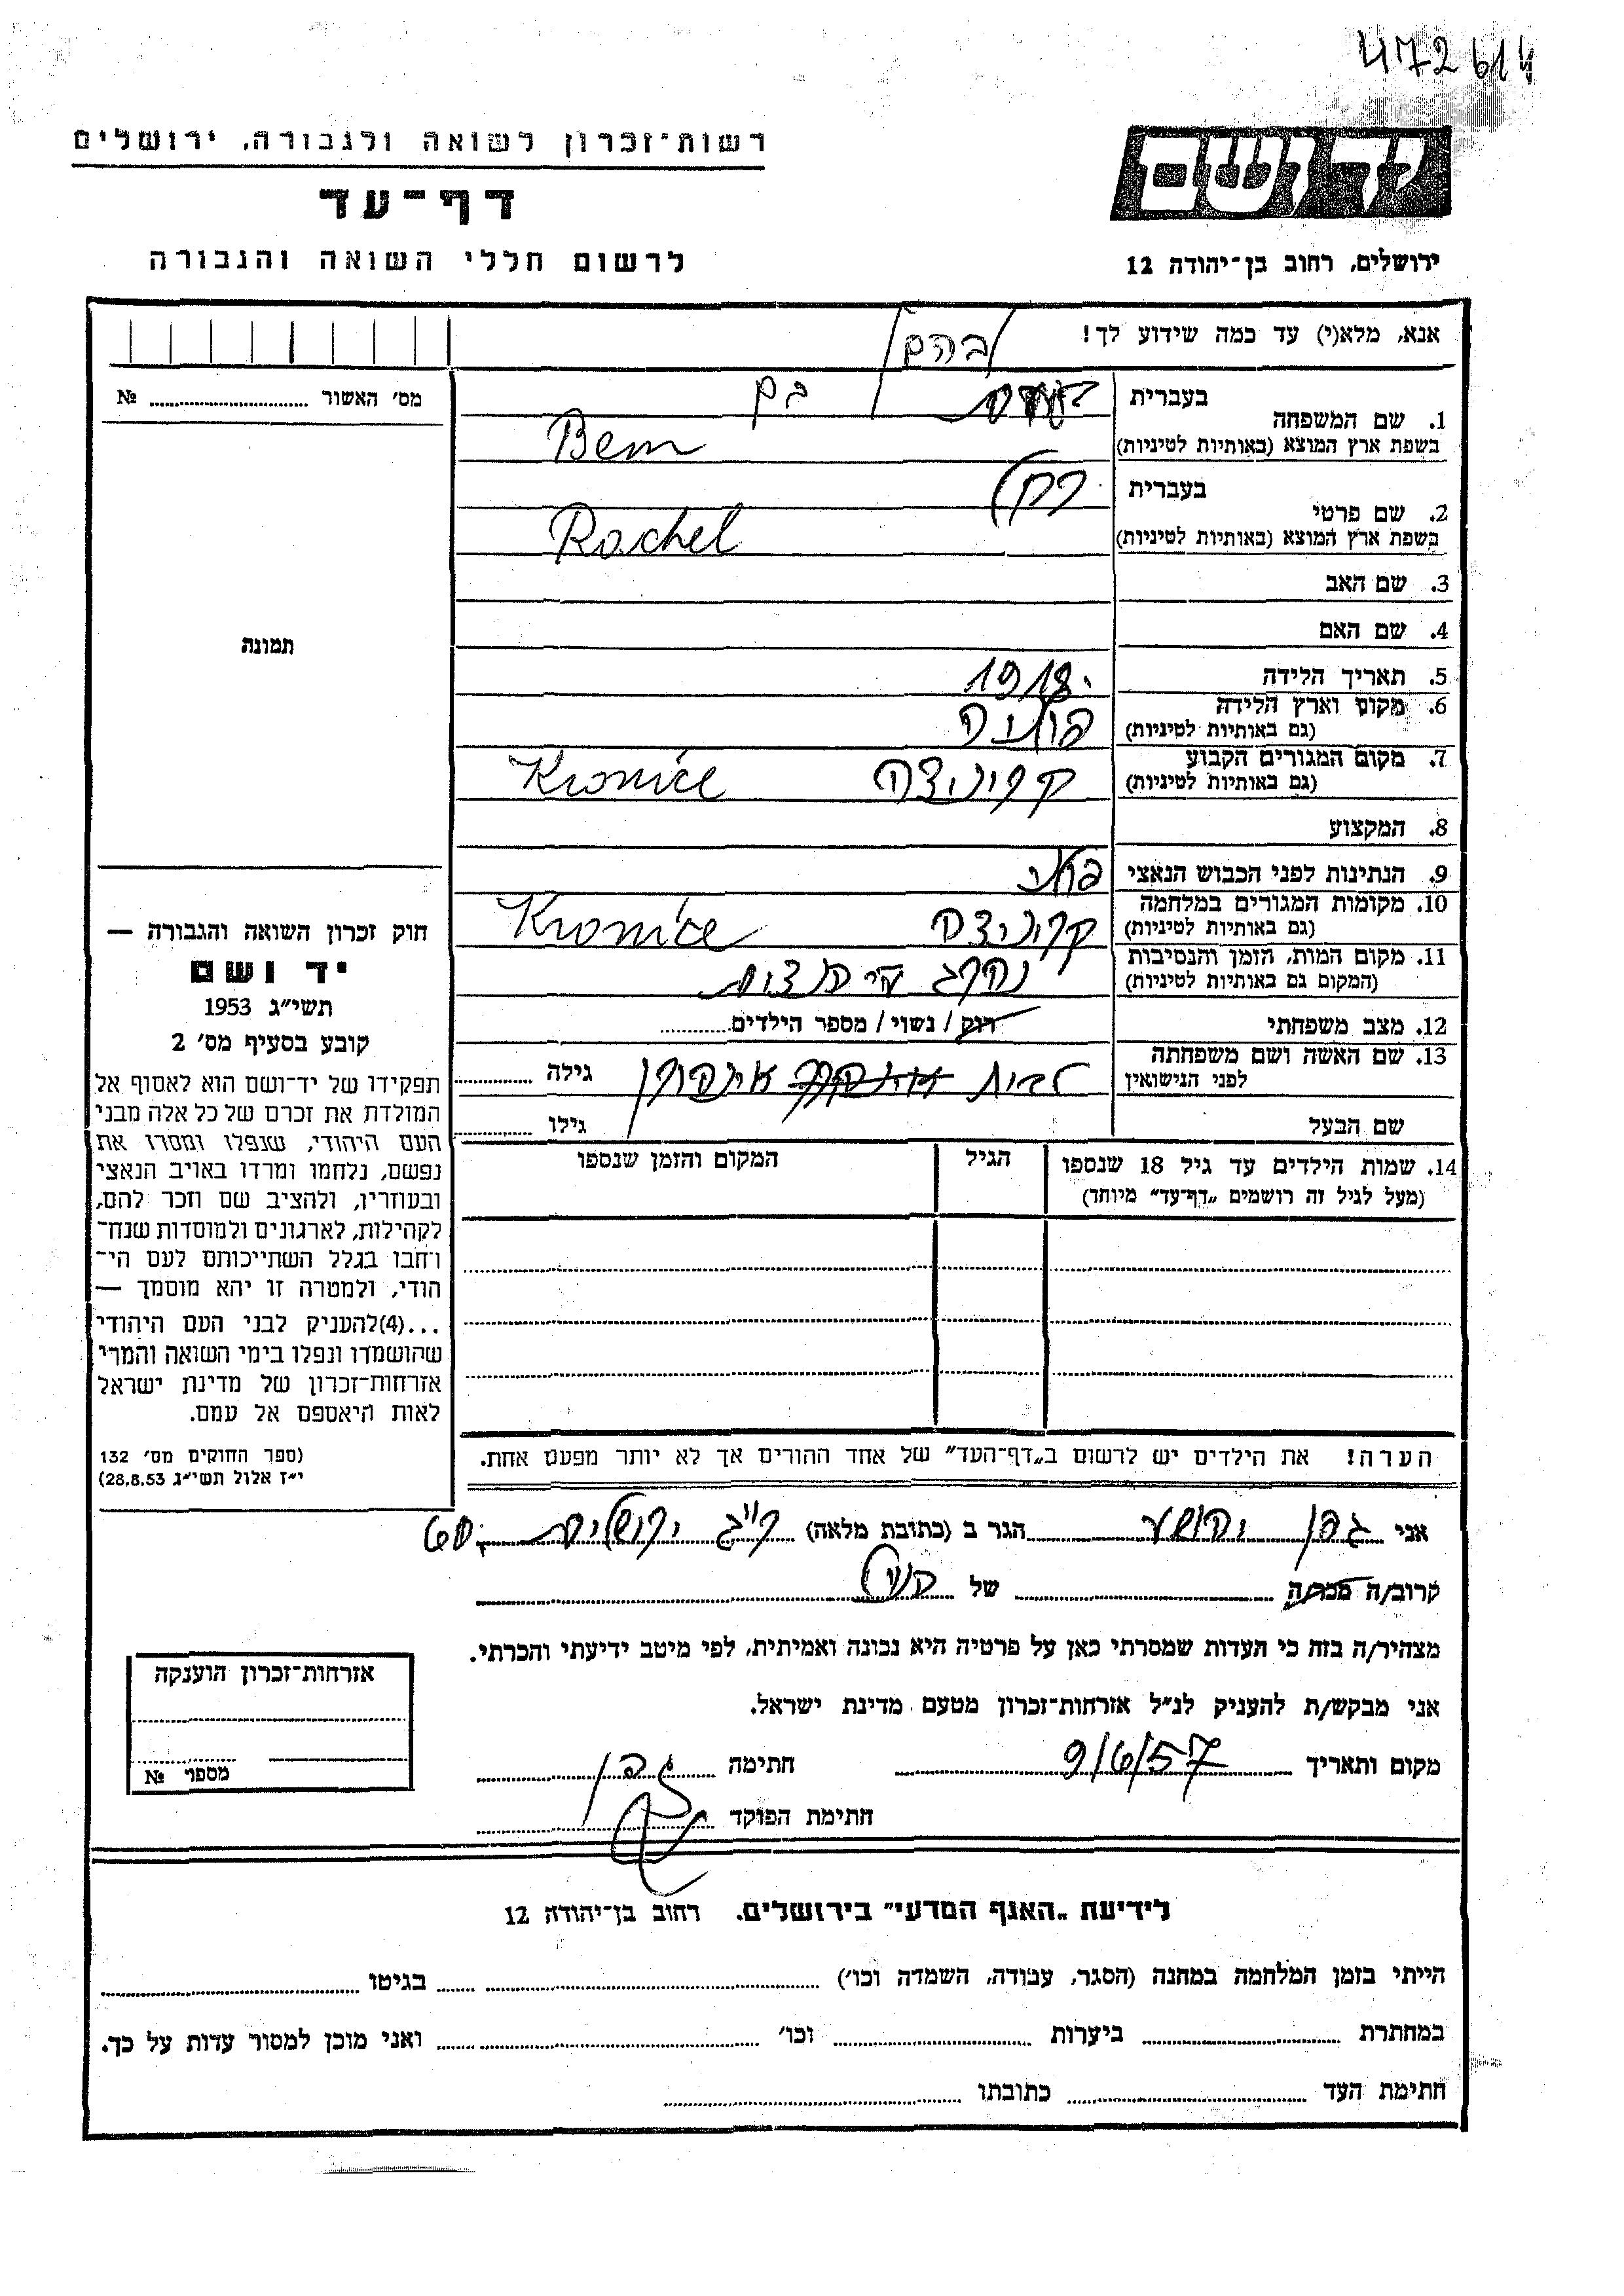 472614
רשות-זכרון לשואה ולגבורה, ירושלים
דף-עד
לרשום חללי השואה והגבורה
ירושלים, רחוב בן-יהודה 12
אנא, מלא(י) עד כמה שידוע לך!
בהם
מס׳ האשור № ........
1. שם המשפחה בעברית בם
בשפת ארץ המוצא (באותיות לטיניות) Bem
2. שם פרטי בעברית רחל
בשפת ארץ המוצא (באותיות לטיניות) Rachel
3. שם האב
4. שם האם
5. תאריך הלידה 1918
6. מקום וארץ הלידה
(גם באותיות לטיניות)
7. מקום המגורים הקבוע קרוניצה Kronice
(גם באותיות לטיניות)
8. המקצוע
9. הנתינות לפני הכבוש הנאצי
10. מקומות המגורים במלחמה קרוניצה Kronice
(גם באותיות לטיניות)
11. מקום המות, הזמן והנסיבות
(המקום גם באותיות לטיניות)
12. מצב משפחתי רוק / נשוי / מספר הילדים........
13. שם האשה ושם משפחתה לבית גילה ........
לפני הנישואין
שם הבעל גילו ........
14. שמות הילדים עד גיל 18 שנספו הגיל המקום והזמן שנספו
(מעל לגיל זה רושמים „דף-עד״ מיוחד)
הערה! את הילדים יש לרשום ב„דף-העד״ של אחד ההורים אך לא יותר מפעם אחת.
תמונה
חוק זכרון השואה והגבורה —
יד ושם
תשי״ג 1953
קובע בסעיף מס׳ 2
תפקידו של יד-ושם הוא לאסוף אל
המולדת את זכרם של כל אלה מבני
העם היהודי, שנפלו ומסרו את
נפשם, נלחמו ומרדו באויב הנאצי
ובעוזריו, ולהציב שם וזכר להם,
לקהילות, לארגונים ולמוסדות שנח-
רחבו בגלל השתייכותם לעם הי-
הודי, ולמטרה זו יהא מוסמך —
...(4)להעניק לבני העם היהודי
שהושמדו ונפלו בימי השואה והמרי
אזרחות-זכרון של מדינת ישראל
לאות היאספם אל עמם.
(ספר החוקים מס׳ 132
י״ז אלול תשי״ג 28.8.53)
אני גפן יהושע הגר ב (כתובת מלאה) ירושלים
קרוב/ה מכר/ה ........ של ........
מצהיר/ה בזה כי העדות שמסרתי כאן על פרטיה היא נכונה ואמיתית, לפי מיטב ידיעתי והכרתי.
אני מבקש/ת להעניק לנ״ל אזרחות-זכרון מטעם מדינת ישראל.
מקום ותאריך 9/6/57 חתימה גפן
חתימת הפוקד
אזרחות-זכרון הוענקה
מספר №
לידיעת „האגף המדעי״ בירושלים. רחוב בן-יהודה 12
הייתי בזמן המלחמה במחנה (הסגר, עבודה, השמדה וכו׳) ........ בגיטו ........
במחתרת ........ ביערות ........ וכו׳ ........ ואני מוכן למסור עדות על כך.
חתימת העד ........ כתובתו ........